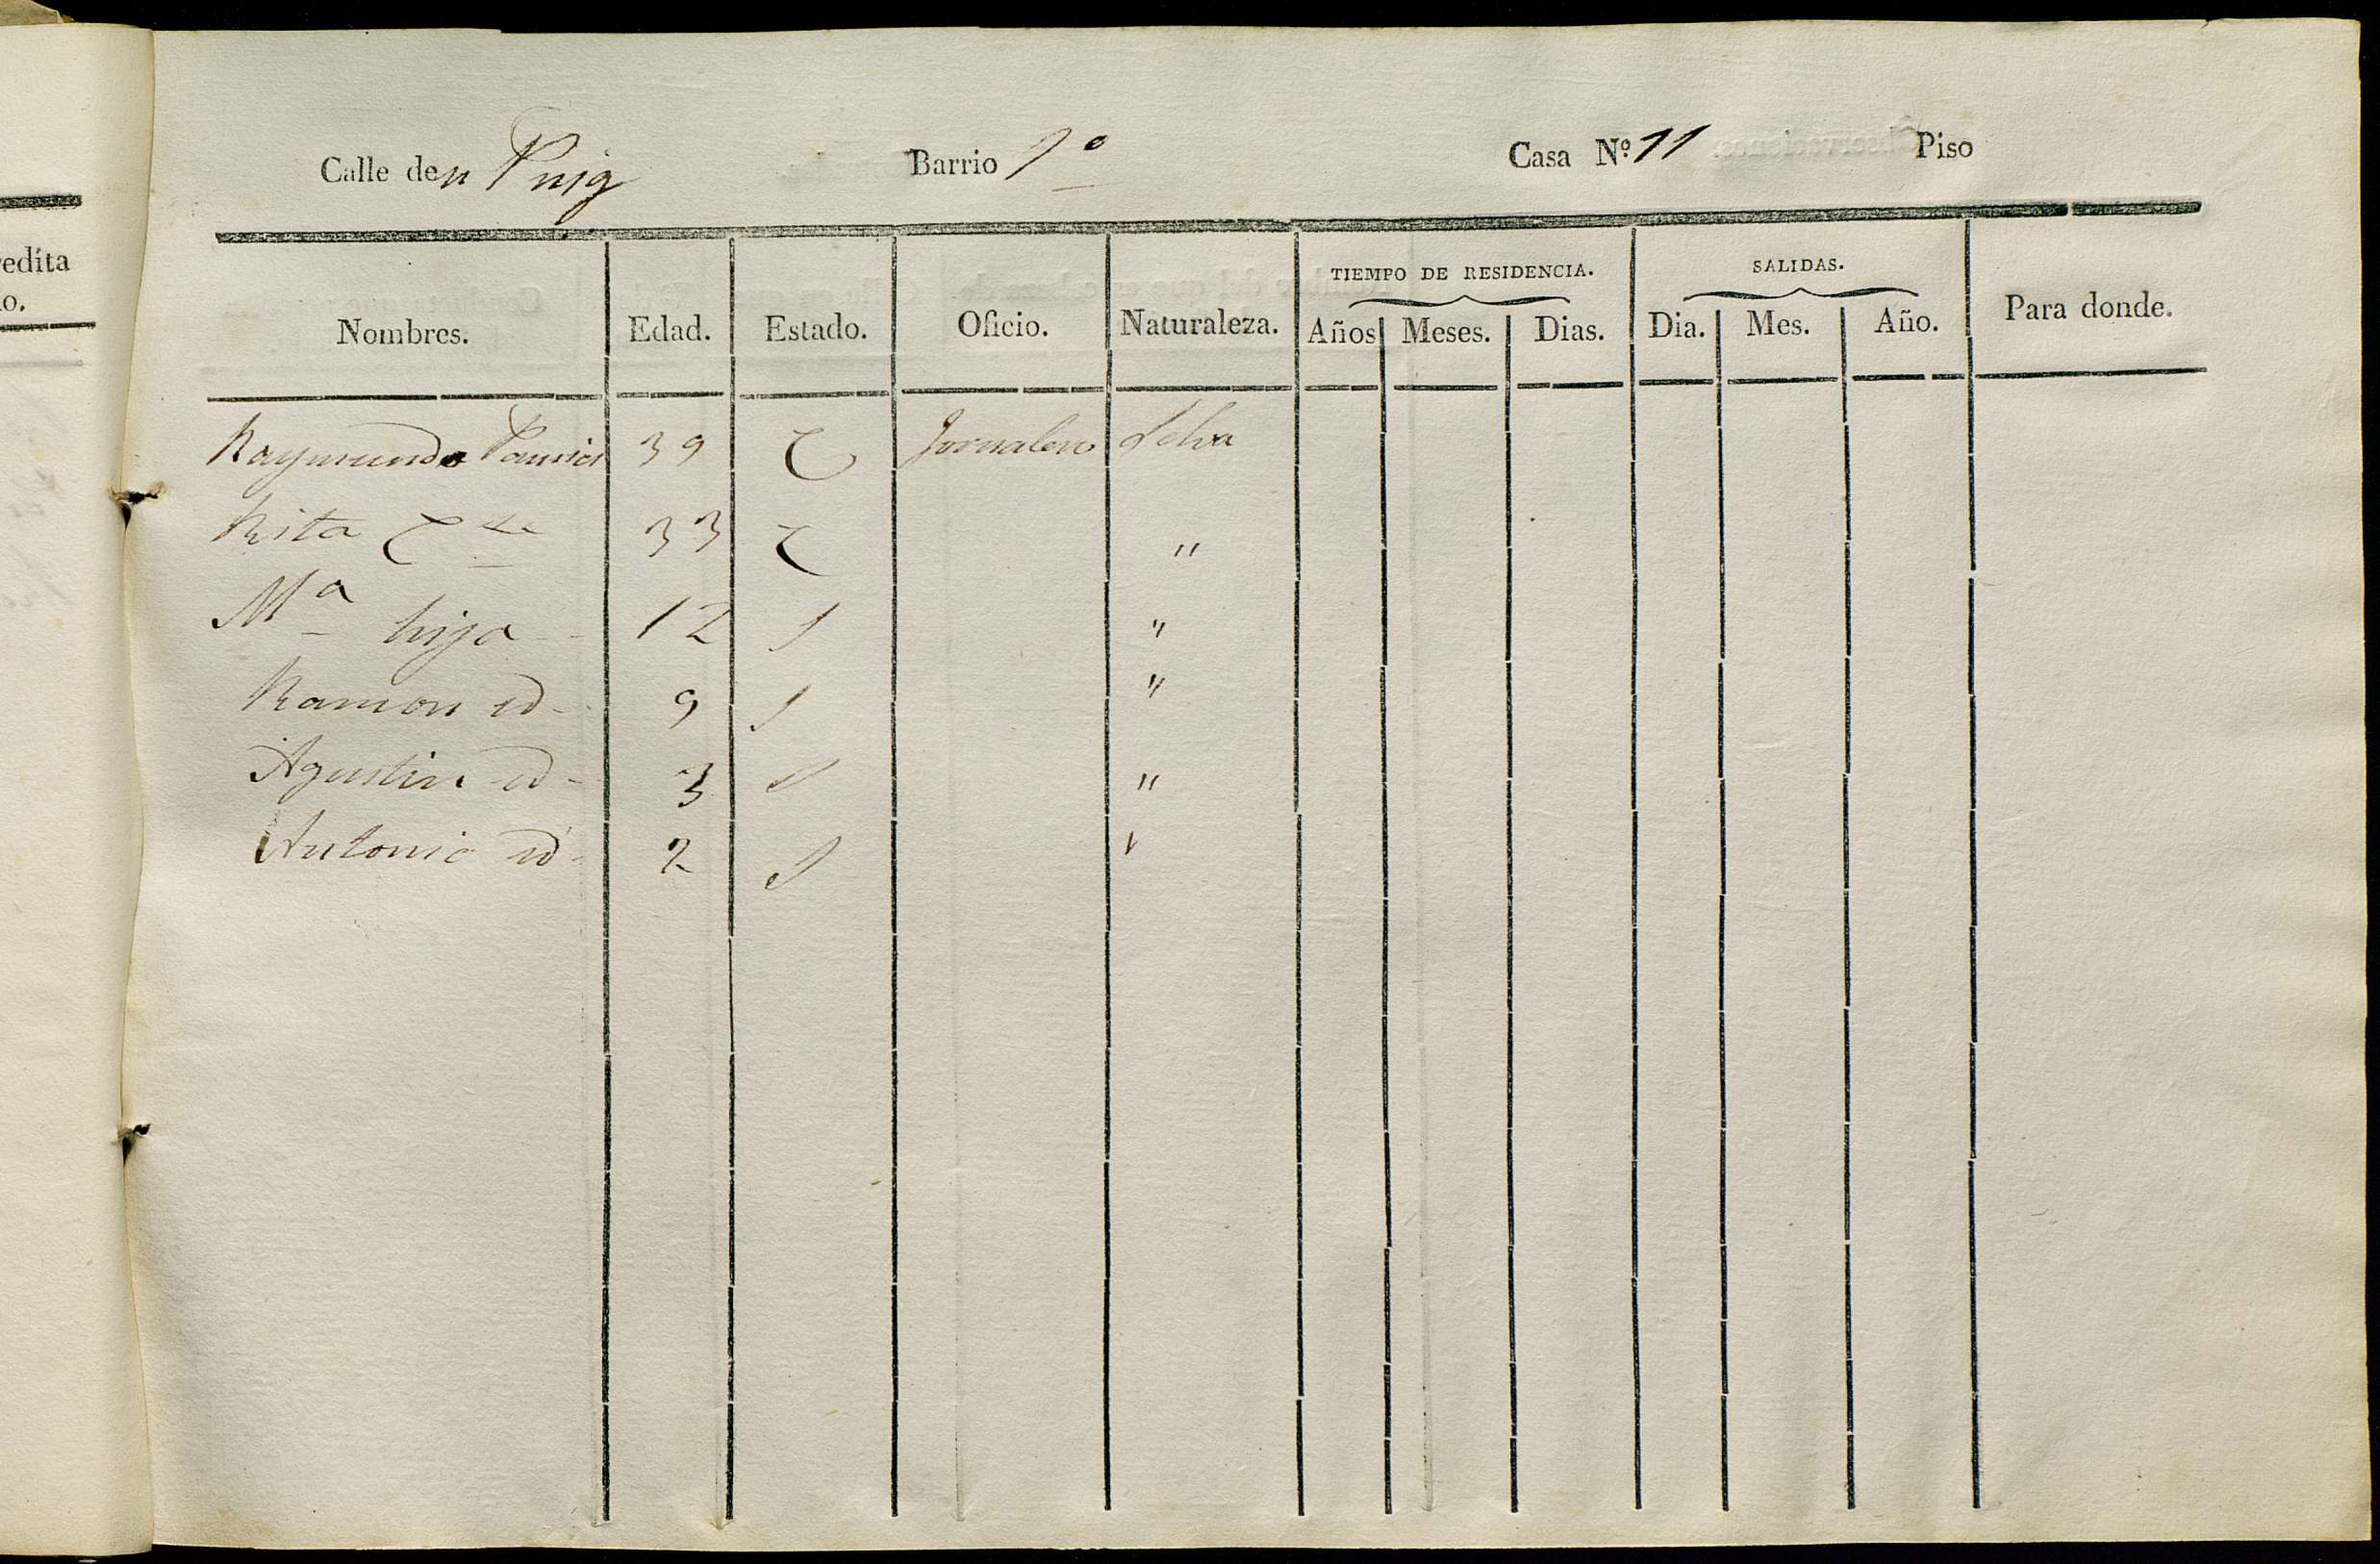 Calle den Puig Barrio 1º Casa Nº 11 Piso
redita
o.
TIEMPO DE RESIDENCIA. SALIDAS.
Nombres. Edad. Estado. Oficio. Naturaleza. Años Meses. Dias. Dia. Mes. Año. Para donde.
Raymundo 39 C Jornalero Selva
Rita C 33 C "
Mª hija 12 S "
Ramon id 9 S "
Agustin id 3 S "
Antonio id 2 S "